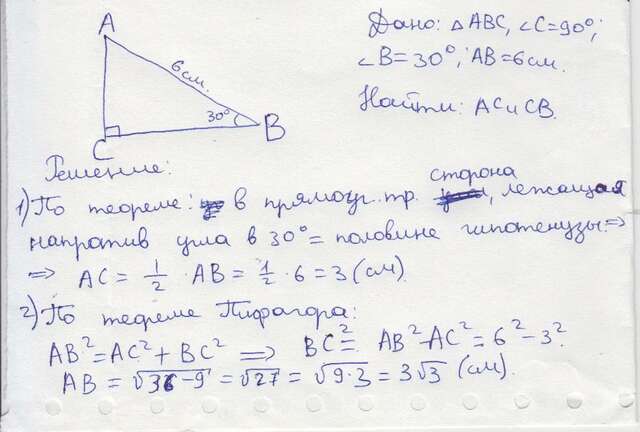 A
6 см.
30°
B
C
Дано: △ABC, ∠C=90°;
∠B=30°; AB=6см.
Найти: AC и CB.
Решение:
1) По теореме: в прямоуг. тр. сторона, лежащая
напротив угла в 30° = половине гипотенузы ⇒
⇒ AC = 1/2 · AB = 1/2 · 6 = 3 (см)
2) По теореме Пифагора:
AB² = AC² + BC² ⇒ BC² = AB² - AC² = 6² - 3².
AB = √36-9 = √27 = √9·3 = 3√3 (см).